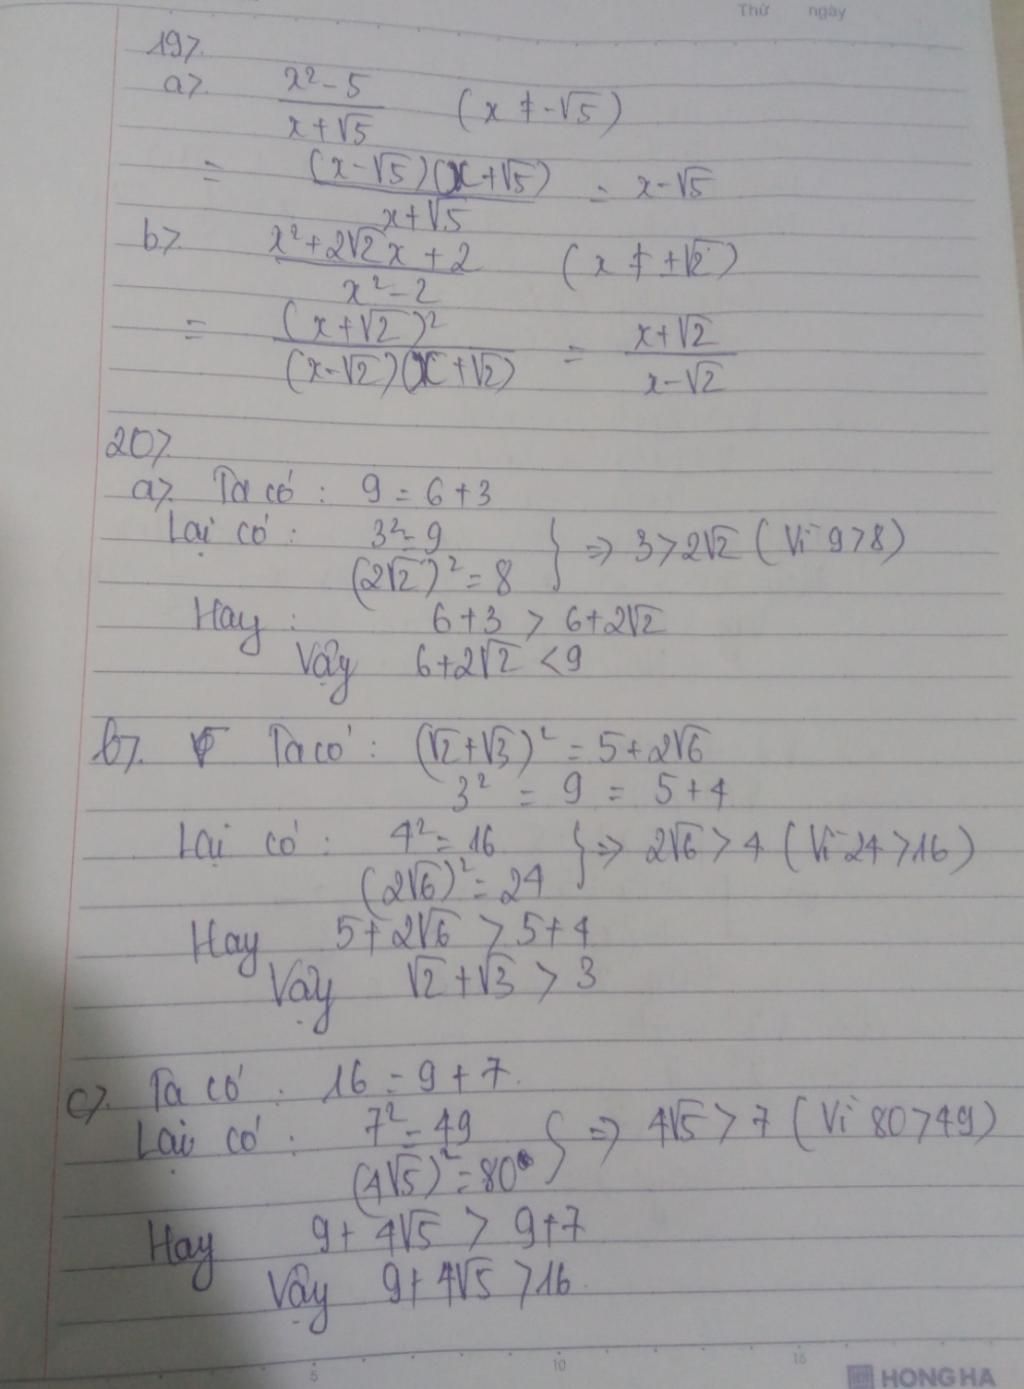 Thứ ngày
19>
a> x² - 5 / x + √5 (x ≠ -√5)
= (x - √5)(x + √5) / x + √5 = x - √5
b> x² + 2√2x + 2 / x² - 2 (x ≠ ±√2)
= (x + √2)² / (x - √2)(x + √2) = x + √2 / x - √2
20>
a> Ta có : 9 = 6 + 3
Lại có : 3² = 9
(2√2)² = 8 } => 3 > 2√2 (Vì 9 > 8)
Hay : 6 + 3 > 6 + 2√2
Vậy 6 + 2√2 < 9
b>. Ta có : (√2 + √3)² = 5 + 2√6
3² = 9 = 5 + 4
Lại có : 4² = 16
(2√6)² = 24 } => 2√6 > 4 (Vì 24 > 16)
Hay 5 + 2√6 > 5 + 4
Vậy √2 + √3 > 3
c>. Ta có : 16 = 9 + 7.
Lại có : 7² = 49
(4√5)² = 80 } => 4√5 > 7 (Vì 80 > 49)
Hay 9 + 4√5 > 9 + 7
Vậy 9 + 4√5 > 16
5 10 15
HONG HA